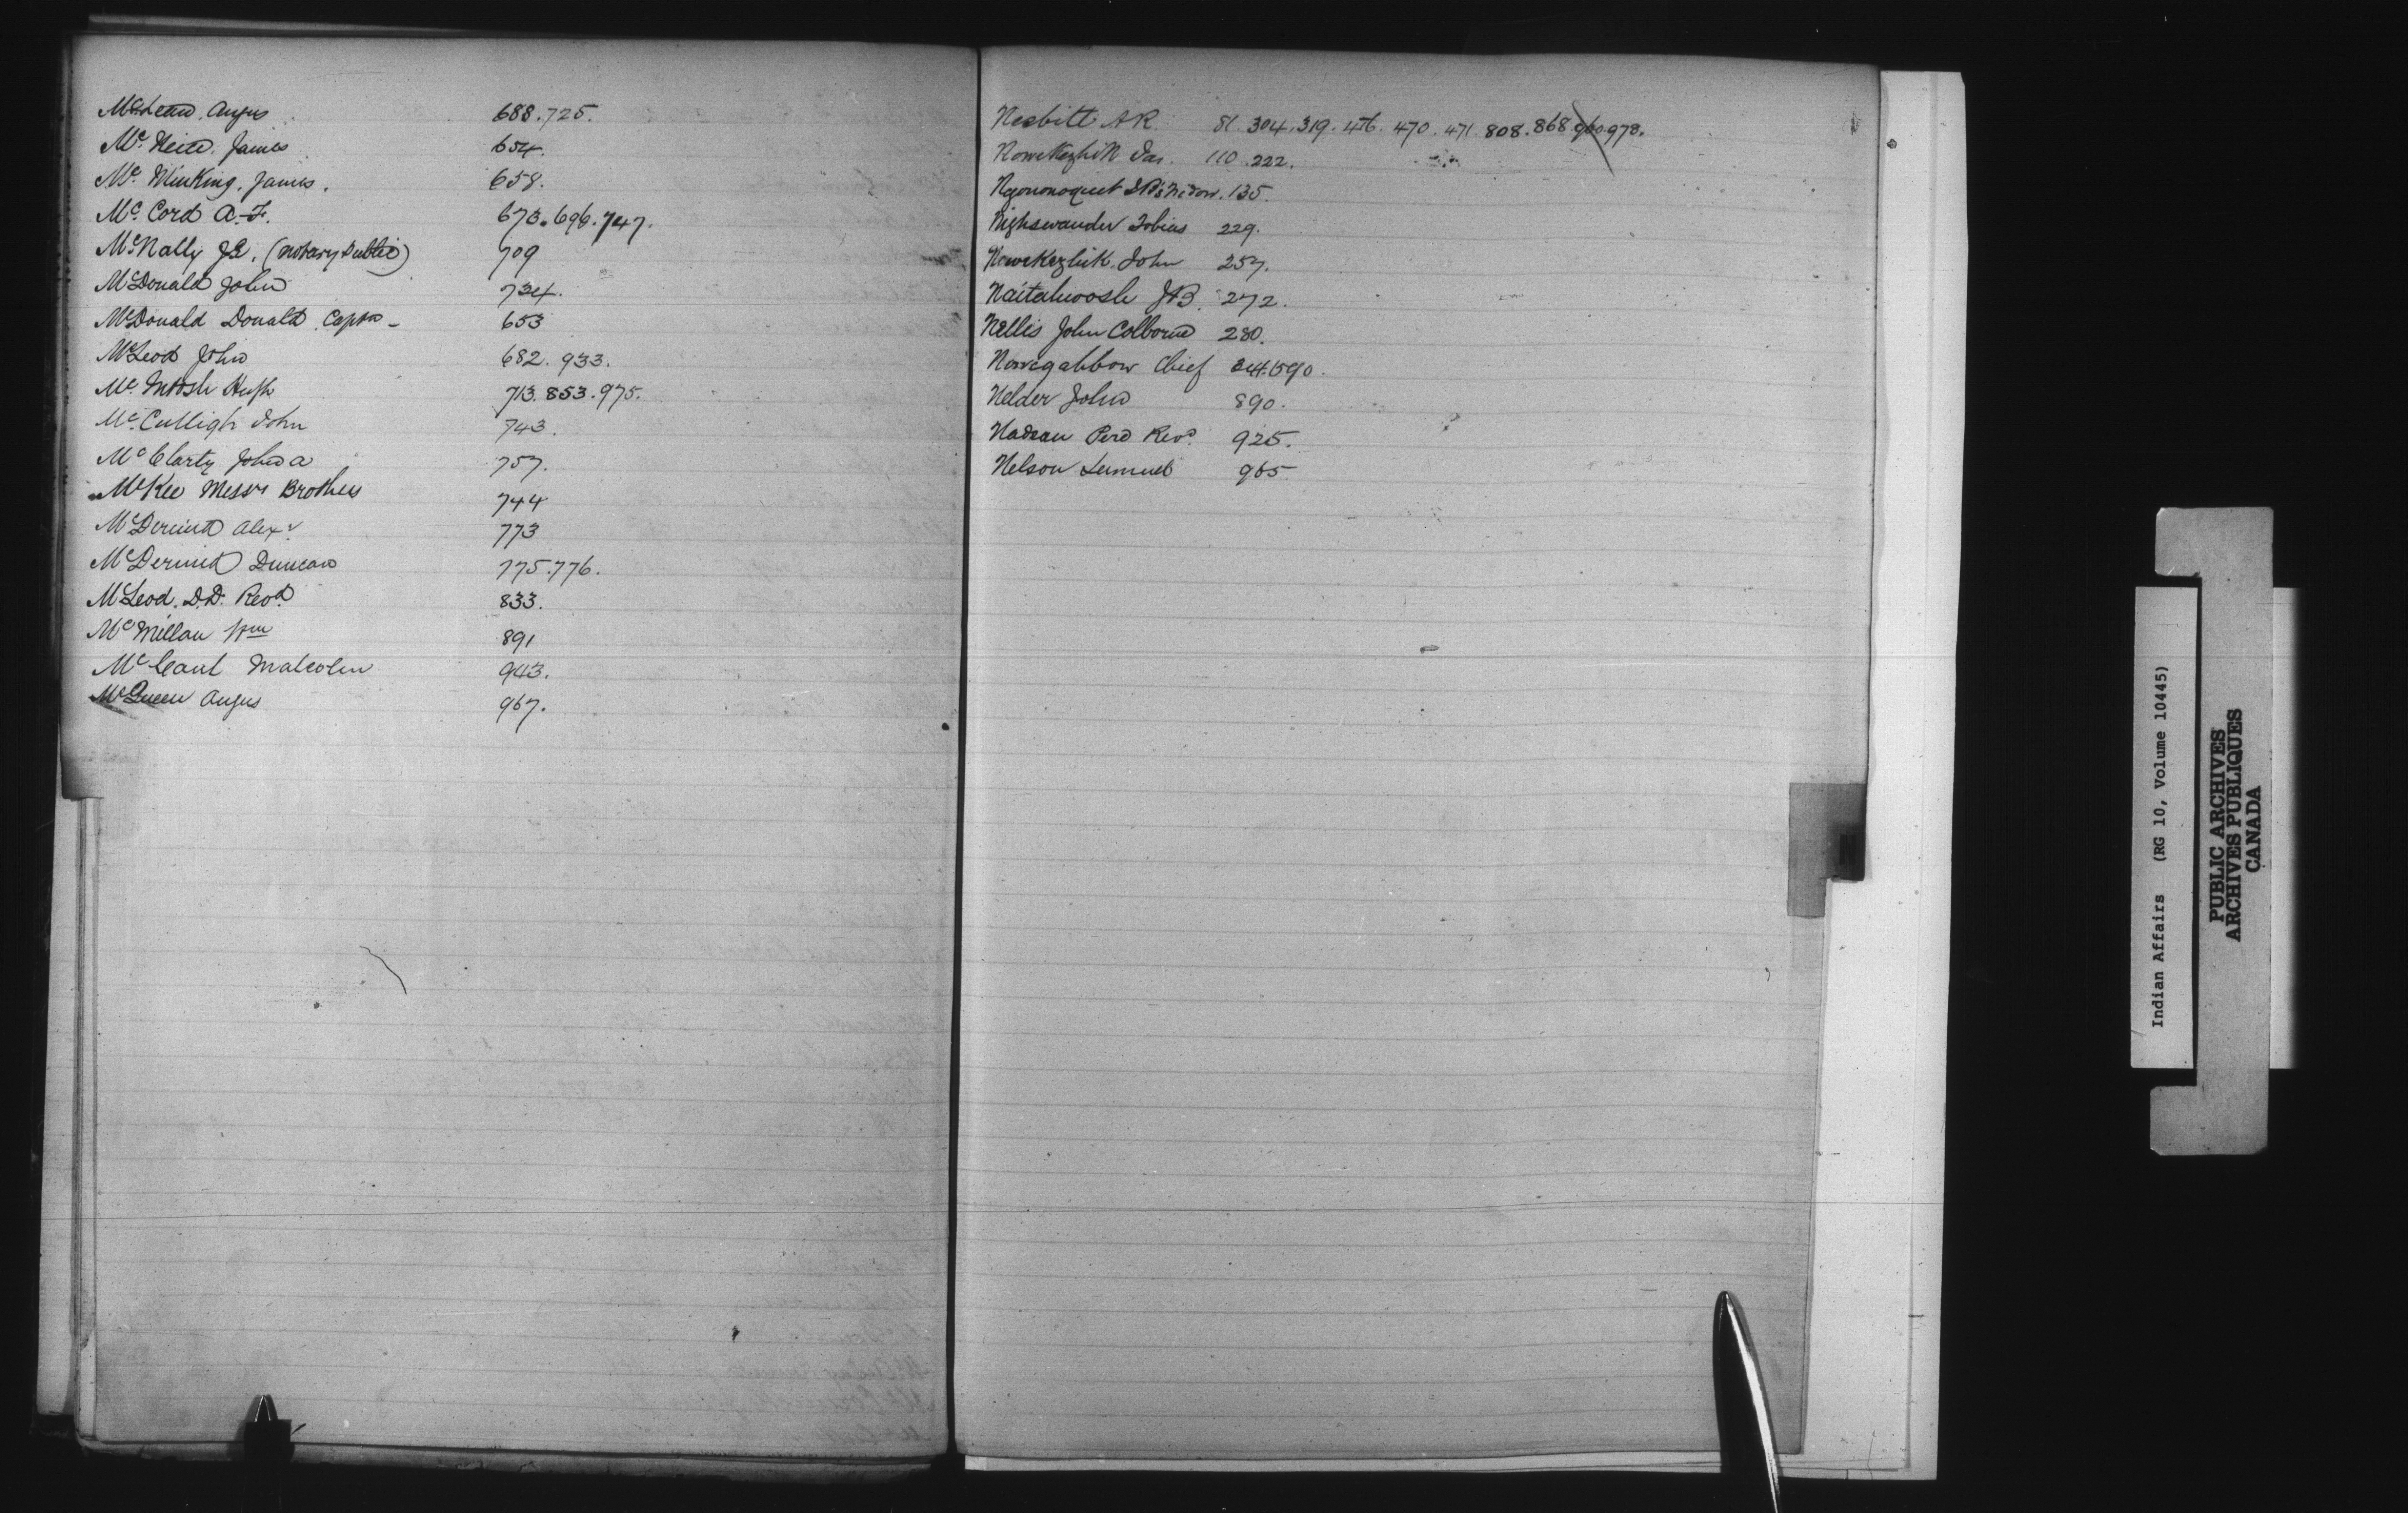 McLean, Angus 688.725.
McNeill. James 654.
Mc. MinKing, James. 658.
Mc. Cord A.F. 673.696.747.
McNally JE. (notary Public) 709
McDonald John 734.
McDonald Donald Captn 653
McLeod John 682. 933.
Mc. Intosh Hugh 713.853.975.
Mc. Culligh John 743.
McClarty John A 757.
McKee Messrs Brothers 744
McDermid Alexr. 773
McDermid Duncan 775.776.
McLeod. D.D. Revd. 833.
McMillan Wm 891
McCaul Malcolm 943.
McQueen Angus 967.
Nesbitt AR. 81. 304.319. 470. 471 808. 868 960.978.
NoweKezhik Jas. 110.222.
135.
Nighswander Tobias 229.
NoweKezhik John 257.
Naitahwosh JB. 272.
Nellis John Colborne 280.
Nowegahbow Chief 590.
Nelder John 890.
Nadeau Revd. 925.
Nelson Lemuel 965
Indian Affairs (RG 10, Volume 10445)
PUBLIC ARCHIVES
ARCHIVES PUBLIQUES
CANADA